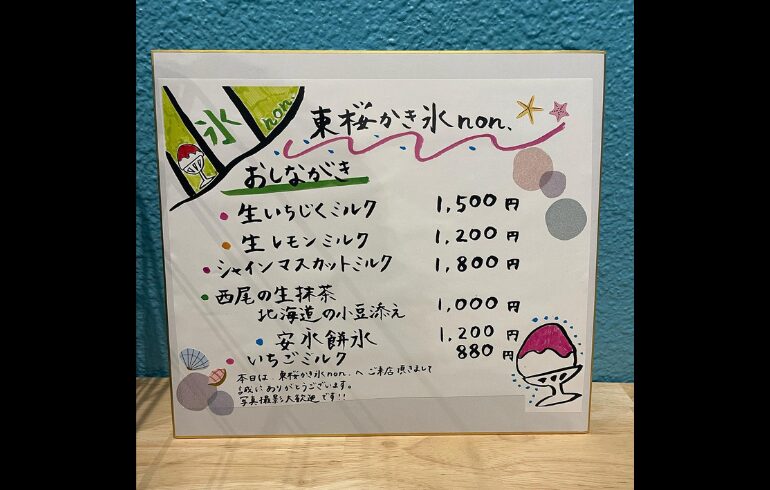 氷 non.
東桜かき氷non.
おしながき
生いちじくミルク 1,500円
生レモンミルク 1,200円
シャインマスカットミルク 1,800円
西尾の生抹茶
北海道の小豆添え 1,000円
安永餅氷 1,200円
いちごミルク 880円
本日は、東桜かき氷non.へご来店頂きまして
誠にありがとうございます。
写真撮影大歓迎です!!